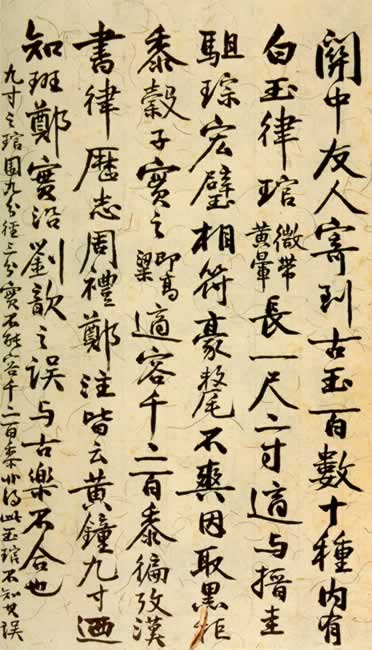 關中友人寄到古玉一百數十種內有
白玉律琯微帶黃暈長一尺二寸適与搢圭
駔琮宏璧相符豪氂不爽因取黑秬
黍穀子實之即高粱適容千二百黍徧攷漢
書律歷志周禮鄭注皆云黃鐘九寸迺
知班鄭實沿劉歆之誤与古樂不合也
九寸之琯圍九分徑三分實不能容千二百黍非得此玉琯不知其誤